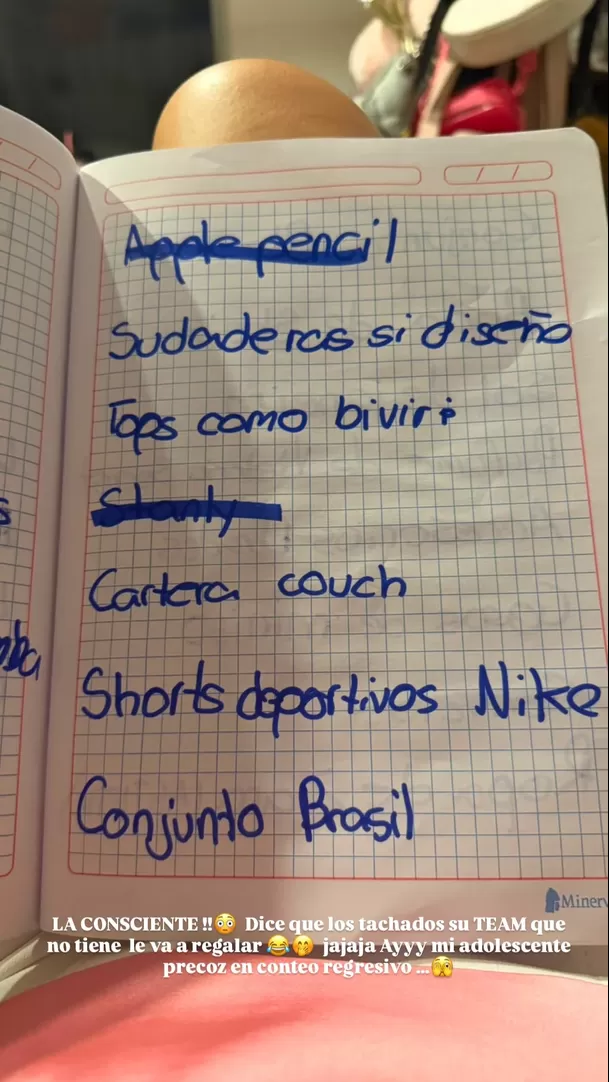 Apple pencil
Sudaderas si diseño
Tops como biviri
Stanly
Cartera couch
Shorts deportivos Nike
Conjunto Brasil
Minerv
LA CONSCIENTE !!😳 Dice que los tachados su TEAM que
no tiene le va a regalar 😂🤭 jajaja Ayyy mi adolescente
precoz en conteo regresivo ...🫣